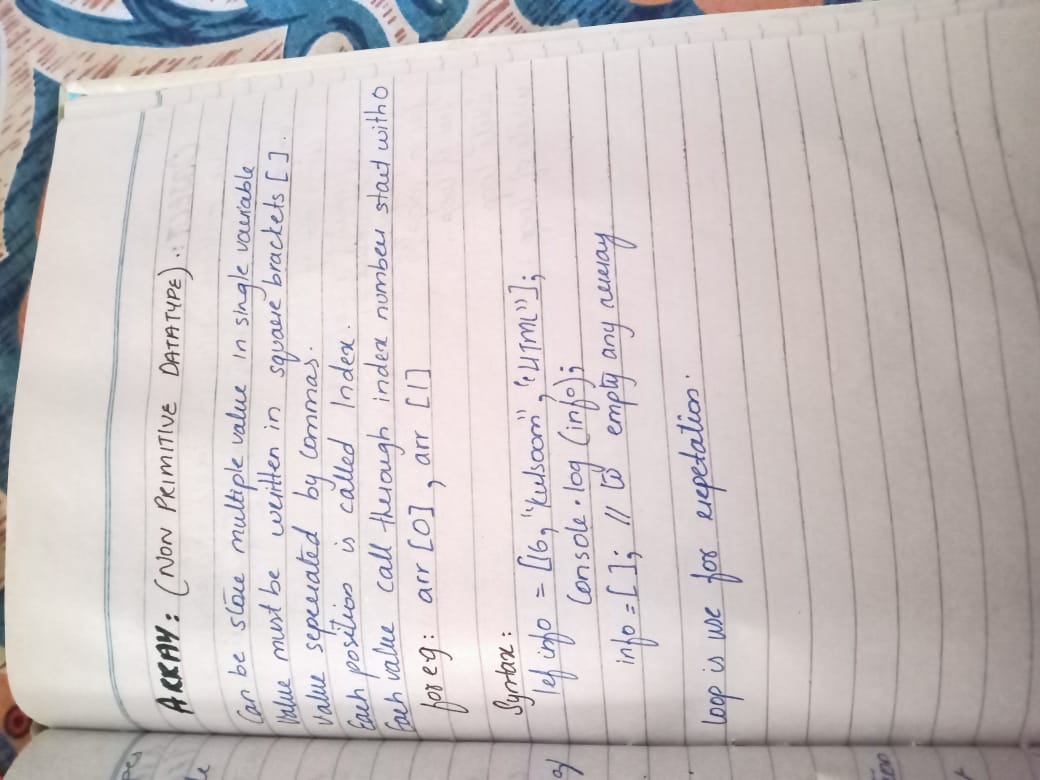 ARRAY: (NON PRIMITIVE DATATYPE).:
Can be store multiple value in single variable
Value must be written in square brackets [ ].
Value seperated by commas.
Each position is called Index.
Each value call through index number start with 0
for eg: arr [0], arr [1]
Syntax:
let info = [16, "Kulsoom", "HTML"];
Console.log (info);
info = [ ]; // to empty any array
loop is use for repetation.